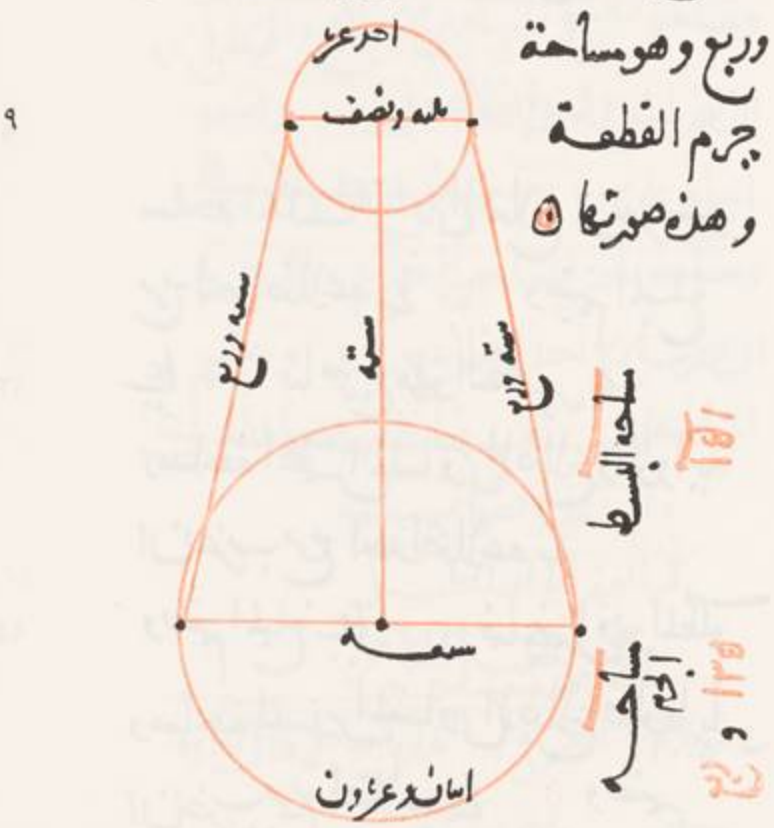 وربع وهو مساحة
جرم القطعة
وهذه صورتها
احد عشر
ثلثه ونصف
سته وربع
ستة
ستة وربع
سبعه
اثنان وعشرون
مساحه البسيط
مساحه
الجرم
و ربع
٩